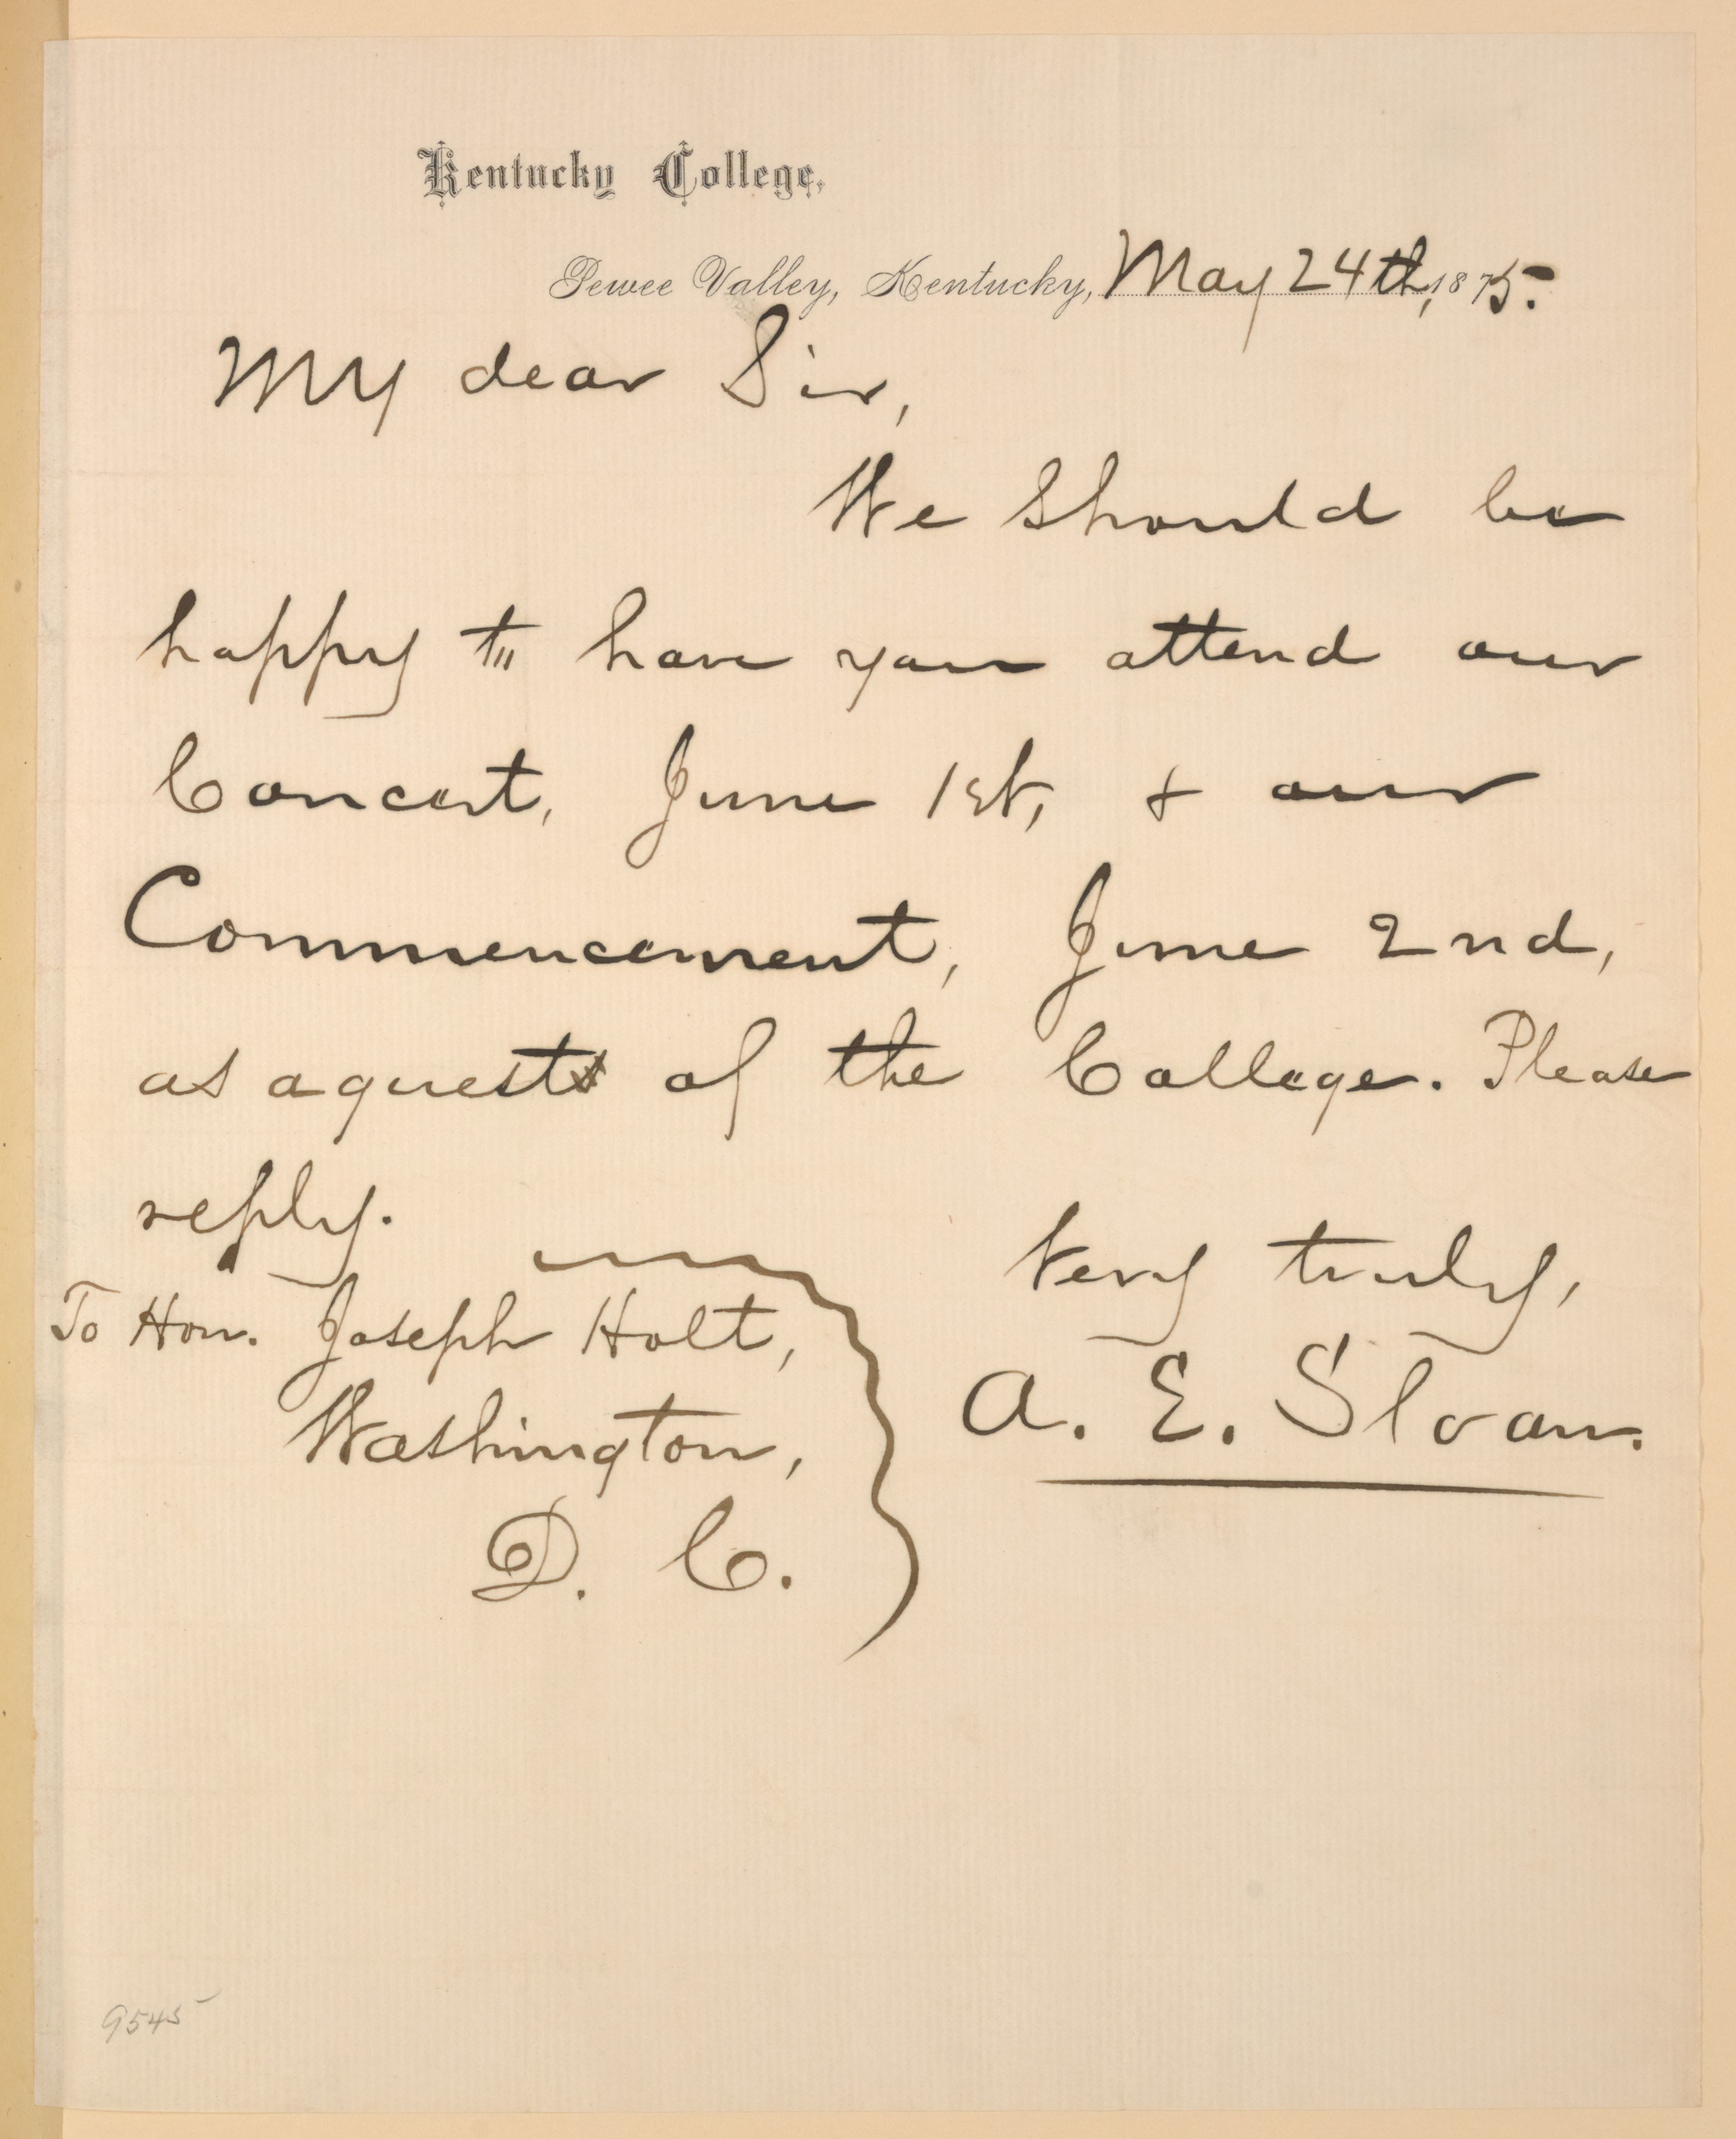 Kentucky College,
Pewee Valley, Kentucky, May 24th, 1875.
My dear Sir,
We should be
happy to have you attend our
Concert, June 1st, & our
Commencement, June 2nd,
as a guest of the College. Please
reply.
Very truly,
A. E. Sloan.
To Hon. Joseph Holt,
Washington,
D. C.
9545